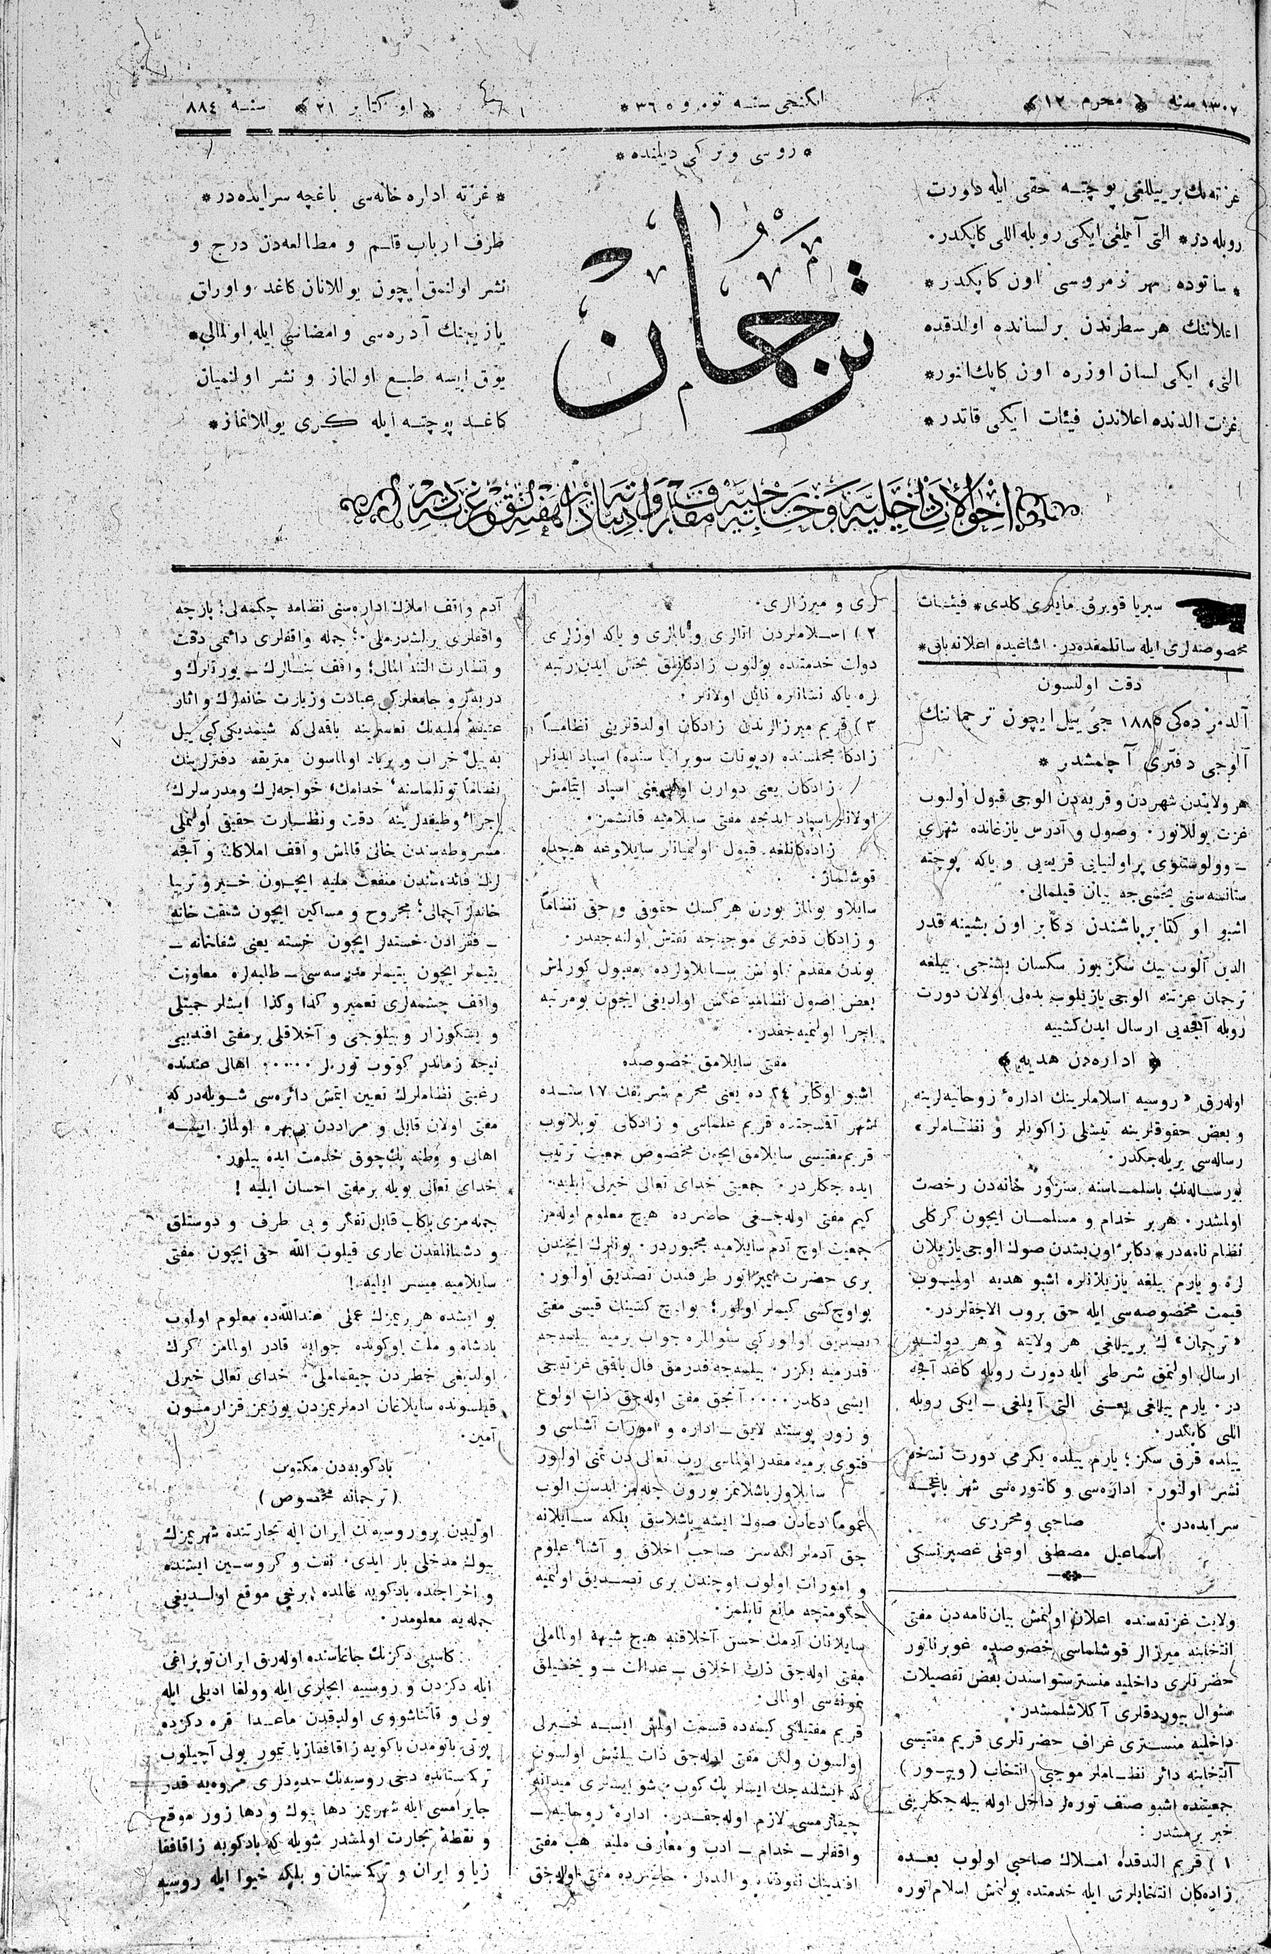 ١٣٠٢ سنه محرم ١٢
ایکنجی سنه نومرو ٣٦
اوکتابر ٢١ سنه ٨٨٤
روسی و ترکی دیلنده
غزته‌نك بر ییللغی پوچته حقی ایله دورت
روبله در التی آیلغی ایکی روبله اللی کاپکدر.
ساتوده هر نومروسی اون کاپکدر
اعلاننك هر سطرندن بر لسانده اولدقده
التی، ایکی لسان اوزره اون کاپك النور
غزت الدنده اعلاندن فیئات ایکی قاتدر
ترجمان
غزته اداره خانه‌سی باغچه سرایده‌در
طرف ارباب قلم و مطالعه‌دن درج و
نشر اولنمق ایچون یوللانان کاغد و اوراق
یازیجینك آدره‌سی و امضاسی ایله اولمالی
یوق ایسه طبع اولنماز و نشر اولنمیان
کاغد پوچته ایله کری یوللانماز
سبریا قویرق مایلری کلدی فیئات
مخصوصه‌لری ایله ساتلمقده‌در. اشاغیده اعلانه باق
دقت اولنسون
آلدمزده‌کی ١٨٨٥ جی ییل ایچون ترجماننك
آلوجی دفتری آچلمشدر
هر ولایتدن شهردن و قریه‌دن الوجی قبول اولنوب
غزت یوللانور. وصول و آدرس یازغانده شهری
وولوستنوی پراولنیایی قریه‌یی و یاکه پوچته
ستانسه‌سنی یخشیجه بیان قیلمالی.
اشبو اوکتابر باشندن دکابر اون بشینه قدر
الدین آلوب بیك سکز یوز سکسان بشنجی ییلغه
ترجمان غزتنه الوجی یازیلوب بده‌لی اولان دورت
روبله آقچه‌یی ارسال ایدن کشییه
اداره‌دن هدیه
اوله‌رق «روسیه اسلاملرینك اداره روحانیه‌لرینه
و بعض حقوقلرینه تیشلی زاکونلر و نظاملر»
رساله‌سی بریله‌جکدر.
بو رساله‌نك باسلماسنه سنزور خانه‌دن رخصت
اولمشدر. هر بر خدام و مسلمان ایچون کرکلی
نظام نامه‌در دکابر اون بشدن صوك الوجی یازیلان
لره و یارم ییلغه یازیلانلره اشبو هدیه اولمیوب
قیمت مخصوصه‌سی ایله حق بروب الاجقلردر.
«ترجمان» ك بر ییللغی هر ولایته و هر دولته
ارسال اولنمق شرطی ایله دورت روبله کاغد آقچه
در. یارم ییللغی یعنی التی آیلغی ـ ایکی روبله
اللی کاپکدر.
ییلده قرق سکز؛ یارم ییلده یکرمی دورت نسخه
نشر اولنور. اداره‌سی و کانتوره‌سی شهر باغچه
سرایده‌در.
صاحبی و محرری
اسماعیل مصطفی اوغلی غصپرنسکی
ولایت غزته‌سنده اعلان اولنمش بیان نامه‌دن مفتی
انتخابنه میرزالر قوشلماسی خصوصده غوبرناتور
حضرتلری داخلیه منسترستواسندن بعض تفصیلات
سئوال بیوردقلری آکلاشلمشدر.
داخلیه منستری غراف حضرتلری قریم مفتیسی
انتخابنه دائر نظاملر موجبی انتخاب (ویبور)
جمعیتنده اشبو صنف توره‌لر داخل اوله بیله‌جکلرینی
خبر برمشدر:
١) قریم الندقده املاك صاحبی اولوب بعده
زاده‌کان انتخابلری ایله خدمتده بولنمش اسلام توره
لری و میرزالری.
٢) اسلاملردن اتالری و بابالری و یاکه اوزلری
دولت خدمتنده بولنوب زادکانلق بخش ایدن رتبه
لره یاکه نشانلره نائل اولانلر.
٣) قریم میرزالرندن زادکان اولدقلرینی نظاما
زادکان مجلسنده (دپوتات سوبرانیاسنده) اسپاد ایدنلر
زادکان یعنی دوارن اولدیغنی اسپاد ایتمامش
اولانلر اسپاد ایدنجه مفتی سایلامیه قاتشمز.
زاده‌کانلغه قبول اولنمیانلر سایلاوغه هیچده
قوشلماز.
سایلاو بولماز بورن هر کسك حقوقی و حقی نظاما
و زادکان دفتری موجبنجه تفتش اولنه‌جقدر.
بوندن مقدم اولمش سایلاولرده مقبول کورلمش
بعض اصول نظامیه عکس اولدیغی ایچون بو مرتبه
اجرا اولنمیه‌جقدر
مفتی سایلامق خصوصده
اشبو اوکتابر ٢٤ ده یعنی محرم شریفك ١٧ سنده
شهر آقمسجتده قریم علماسی و زادکانی توپلانوب
قریم مفتیسی سایلامق ایچون مخصوص جمعیت ترتیب
ایده‌جکلردر. جمعیتی خدای تعالی خیرلی ایلیه.
کیم مفتی اوله‌جغی حاضرده هیچ معلوم اوله‌مز
جمعیت اوچ آدم سایلامیه مجبوردر. بونلرك ایچندن
بری حضرت ایمپراتور طرفندن تصدیق اولنور.
بو اوچ کشی کیملر اولور؛ بو اوچ کشینك قیسی مفتی
تصدیق اولنور کبی سئواللره جواب برمیه بیلمه‌جه
قدرمیه بکزر. بیلمه‌جه قدرمق فال باقق غزته‌جی
ایشی دکلدر.... آنجق مفتی اوله‌جق ذات اولوغ
و زور پوستنه لایق ـ اداره و امورات آشناسی و
فتوی برمیه مقدر اولماسی رب تعالی‌دن تمنی اولنور
سایلاولر باشلانمز بورون جمله‌مز ابدست الوب
عموما دعادن صوك ایشه باشلاسق بلکه سایلانه
جق آدملر لکه‌سز صاحب اخلاق و آشناء علوم
و امورات اولوب اوچندن بری تصدیق اولنمیه
حکومتجه مانع تابلمز.
سایلانان آدمك حسن آخلاقنه هیچ شبهه اولماملی
مفتی اوله‌جق ذات اخلاق ـ عدالت ـ و یخشیلق
نمونه‌سی اولمالی.
قریم مفتیلکی کیمنه‌ده قسمت اولمش ایسه خیرلی
اولسون ولکن مفتی اوله‌جق ذات بیلمش اولسون
که ایشلنه‌جك ایشلر پك کوب. شو ایشلری میدانه
چیقارمسی لازم اوله‌جقدر. اداره روحانیه ـ
واقفلر ـ خدام ـ ادب و معارف ملیه هب مفتی
افندینك نفوذنده و النده‌در. حاضرده مفتی اوله‌جق
آدم واقف املاك اداره‌سنی نظامه چکمه‌لی؛ پارچه
واقفلری برلشدرملی؛ جمله واقفلری دائمی دقت
و نظارت التنه المالی؛ واقف بنالرك ـ یورتلرك و
دربه‌لر و جامعلرکبی عبادت و زیارت خانه‌لرك و اثار
عتیقه ملیه‌نك تعمیرینه باقملی که شیمدیکی کبی ییل
به ییل خراب و برباد اولماسون متریقه دفترلرینك
نظاما توتلماسنه، خدامك، خواجه‌لرك و مدرسلرك
اجراء وظیفه‌لرینه دقت و نظارت حقیقی اولنملی
مشروطه‌سندن خالی قالمش واقف املاکك و آقچه
لرك فائده‌سندن منفعت ملیه ایچون خیر و تربیا
خانه‌لر آچمالی؛ مجروح و مساکین ایچون شفقت خانه
ـ فقرادن خسته‌لر ایچون خسته یعنی شفاخانه ـ
یتیملر ایچون یتیملر مدرسه‌سی ـ طلبه‌لره معاونت
واقف چشمه‌لری تعمیر و کذا وکذا ایشلر حمیتلی
و ایشکوزار و بیلوجی و آخلاقلی بر مفتی افندییی
نیجه زماندر کوتوب تورلر..... اهالی عندنده
رغبتی نظاملرك تعیین ایتمش دائره‌سی شویله‌در که
مفتی اولان قابل و مراددن بی‌بهره اولماز ایسه
اهالی و وطنه پك چوق خدمت ایده بیلور.
خدای تعالی بویله بر مفتی احسان ایلیه!
جمله‌مزی پاك قابل تفکر و بی طرف و دوستلق
و دشمانلقدن عاری قیلوب الله حق ایچون مفتی
سایلامیه میسر ایلیه!
بو ایشده هر بریمزك عملی عندالله‌ده معلوم اولوب
پادشاه و ملت اوکونده جوابه قادر اولمامز کرك
اولدیغی خطردن چیقماملی. خدای تعالی خیرلی
قیلسون‌ده سایلاغان ادملریمزدن یوزیمز قزارمسون
آمین.
بادکوبه‌دن مکتوب
(ترجمانه مخصوص)
اولیدن برو روسیه‌نك ایران ایله تجارتنده شهریمزك
بیوك مدخلی بار ایدی. نفت و کروسین ایشنده
و اخراجنده بادکوبه عالمده برنجی موقع اولدیغی
جمله‌یه معلومدر.
کاسپی دکزنك جانماسنده اوله‌رق ایران توپراغی
ایله دکزدن و روسیه ایچلری ایله وولغا ادیلی ایله
یولی و قاتناشووی اولدقدن ماعدا قره دکزده
پوتی باتومدن باکویه زاقافقازیا تیمور یولی آچیلوب
ترکستانده دخی روسیه‌نك حدودلری مروه‌یه قدر
جایرامسی ایله شهریمز دها بیوك و دها زور موقع
و نقطه تجارت اولمشدر شویله که بادکوبه زاقافقا
زیا و ایران و ترکستان و بلکه خیوا ایله روسیه